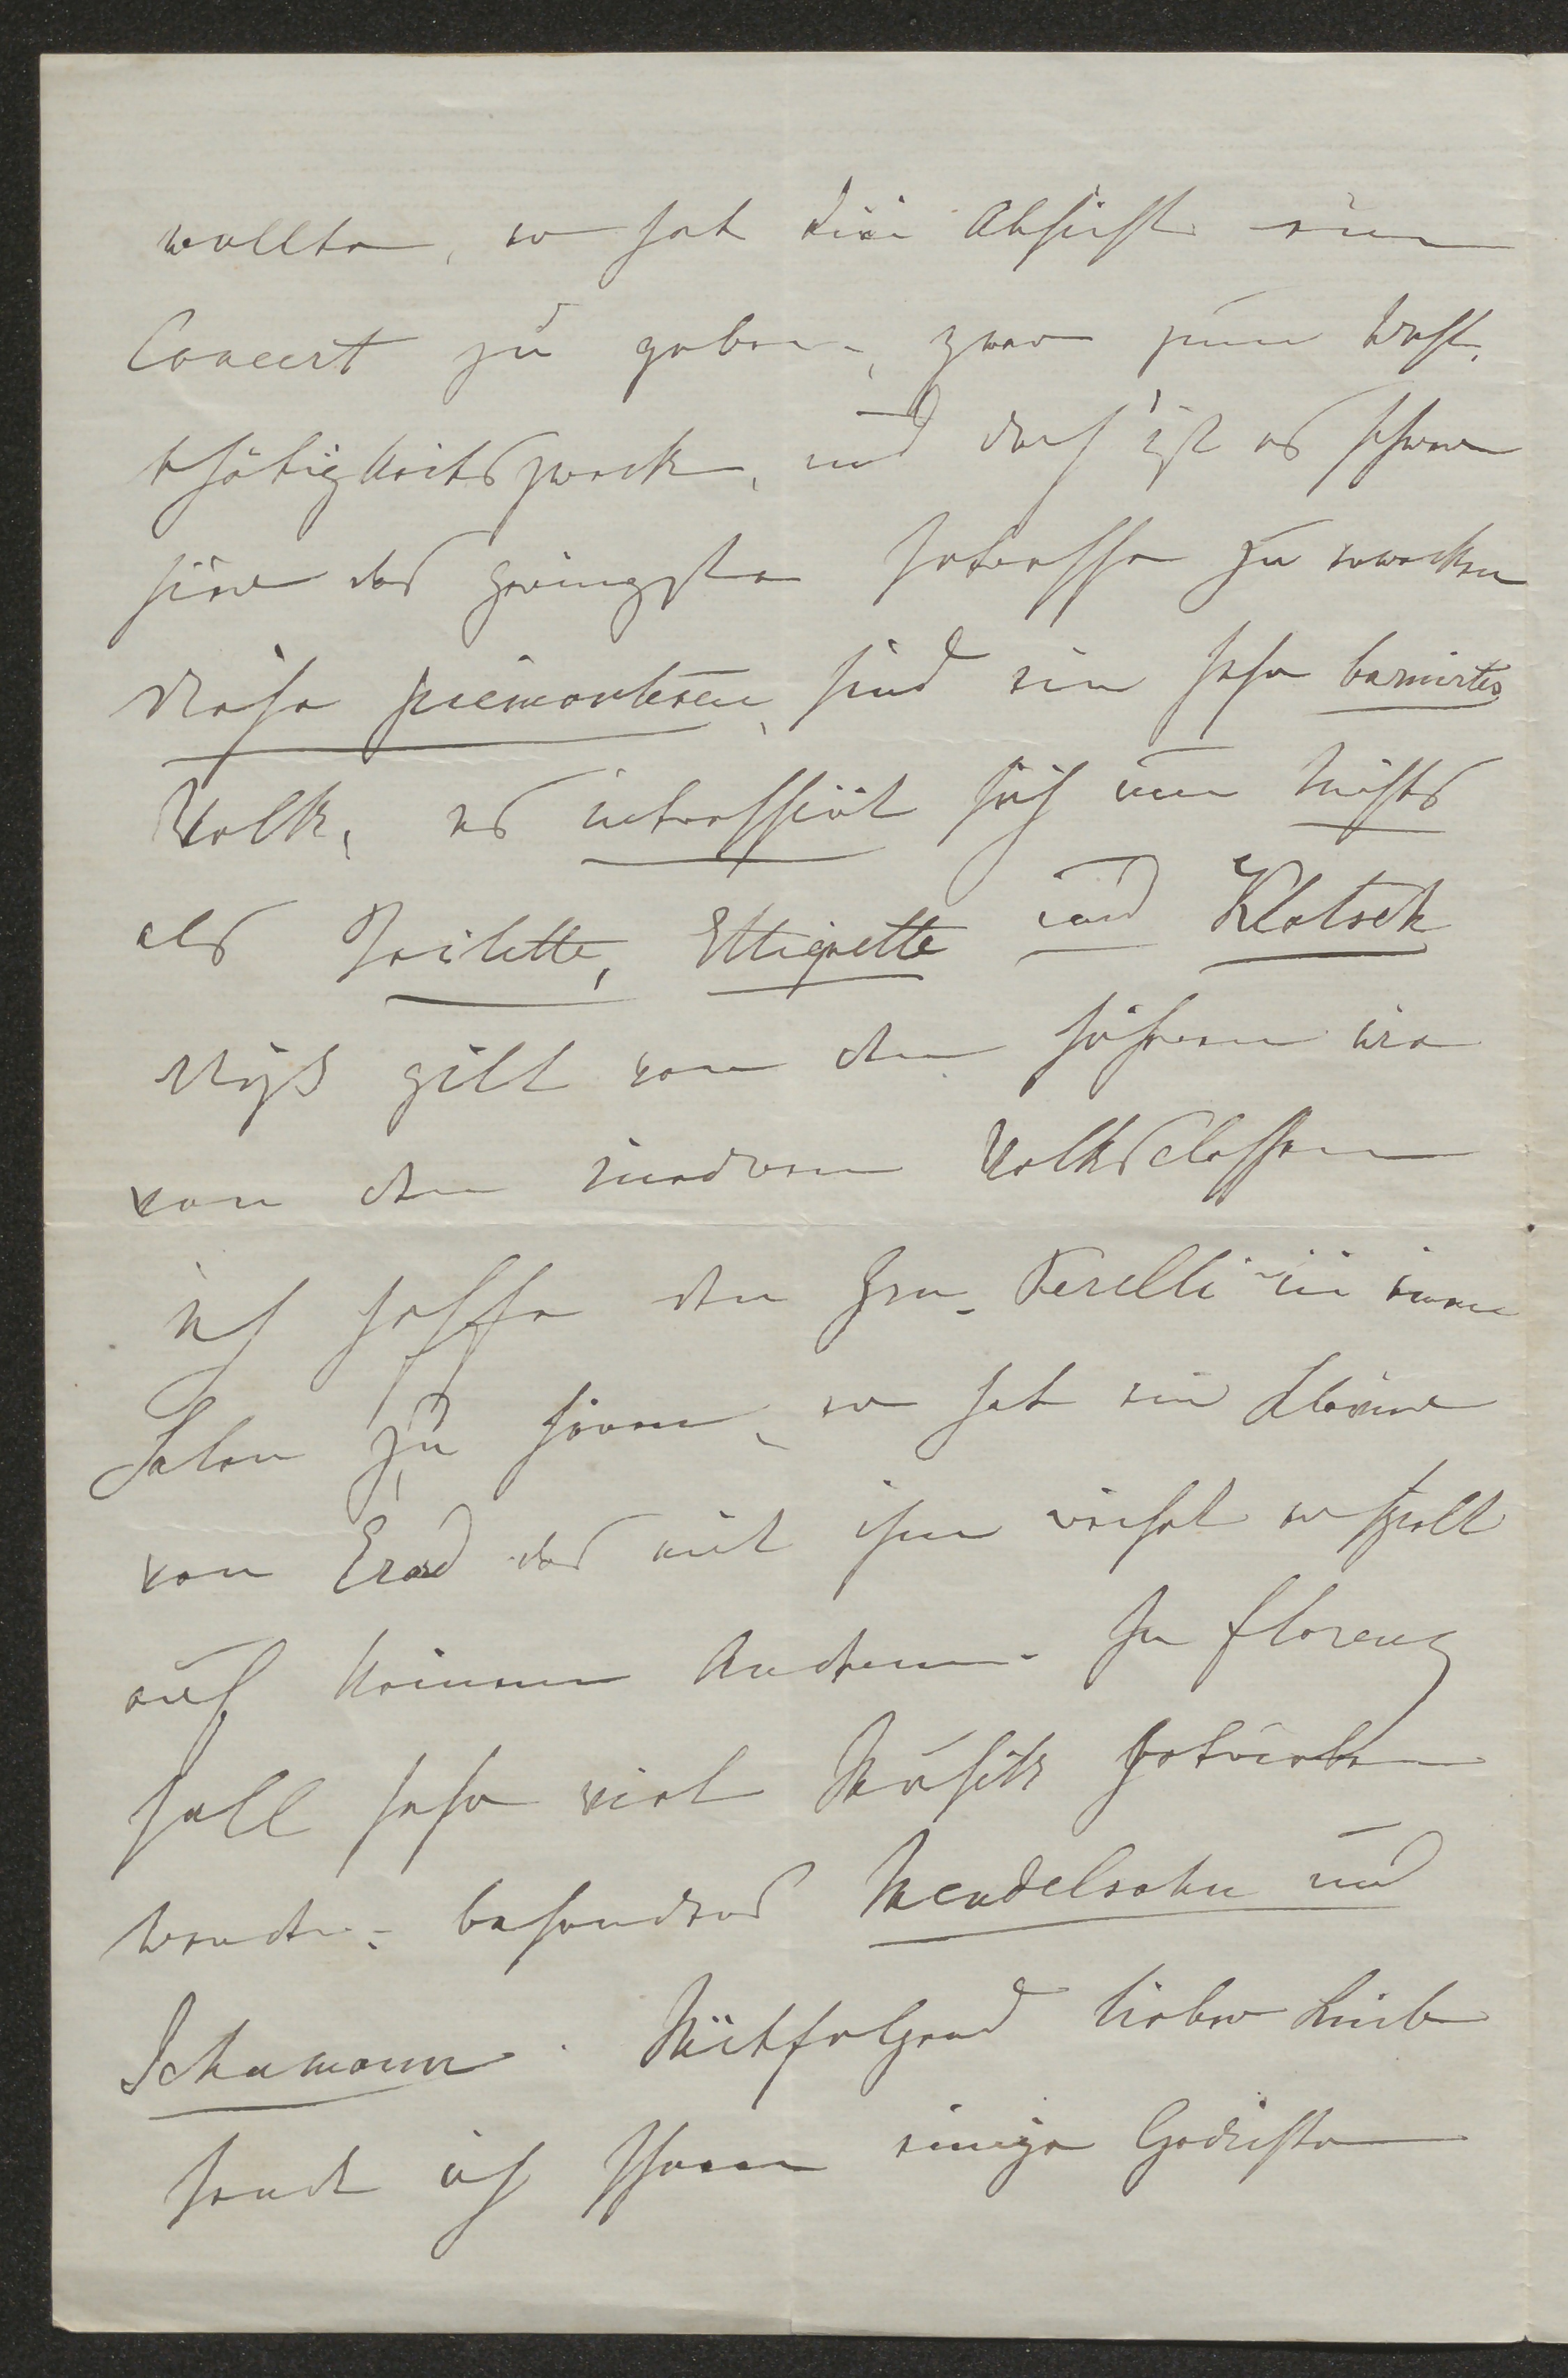 wollte, er hat die Absicht ein
Concert zu geben, zwar zum Wohl-
thätigkeitszweck, und doch ist es schwer
hier das geringste Interesse zu erwecken
diese piemontesen, sind ein sehr bornirtes
Volk, es interessirt sich um Nichts
als Toilette, Ettiquette und Klatsch
dieß gilt von den höheren wie
von den niederen Volksclassen
ich hoffe den Hrn. Perelli in einem
Salon zu hören, er hat ein Clavier
von Erard das mit ihm reiset er spielt
auf keinem Anderen. In Florenz
soll sehr viel Musik getrieben
werden, besonders Mendelsohn und
Schumann. Mitfolgend lieber
sende ich Ihnen einige Gedichte